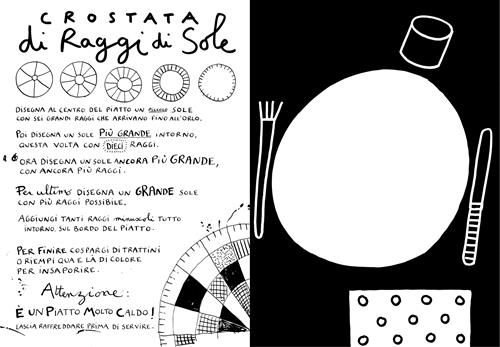 CROSTATA
di Raggi di Sole
DISEGNA AL CENTRO DEL PIATTO UN PICCOLO SOLE
CON SEI GRANDI RAGGI CHE ARRIVANO FINO ALL'ORLO.
POI DISEGNA UN SOLE PIÙ GRANDE INTORNO,
QUESTA VOLTA CON DIECI RAGGI.
ORA DISEGNA UN SOLE ANCORA PIÙ GRANDE,
CON ANCORA PIÙ RAGGI.
Per ultimo DISEGNA UN GRANDE SOLE
CON PIÙ RAGGI POSSIBILE.
AGGIUNGI TANTI RAGGI minuscoli TUTTO
INTORNO, SUL BORDO DEL PIATTO.
PER FINIRE COSPARGI DI TRATTINI
O RIEMPI QUA E LÀ DI COLORE
PER INSAPORIRE.
Attenzione:
È UN PIATTO MOLTO CALDO!
LASCIA RAFFREDDARE PRIMA DI SERVIRE.